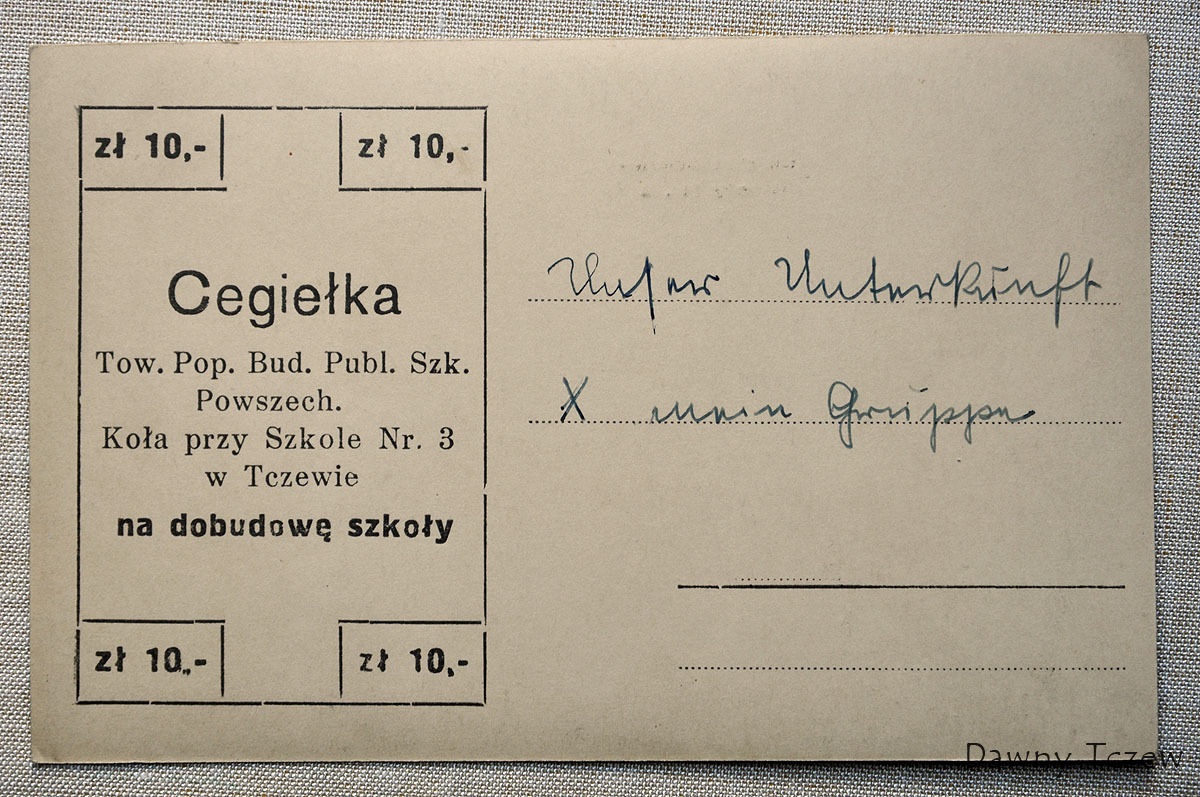 zł 10,- zł 10,-
Cegiełka
Tow. Pop. Bud. Publ. Szk.
Powszech.
Koła przy Szkole Nr. 3
w Tczewie
na dobudowę szkoły
zł 10,- zł 10,-
Unser Unterkunft
X mein Gruppe
Dawny Tczew